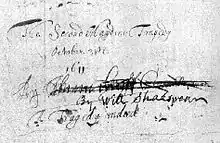 The Second Maydens Tragedy
October 31st
1611
By Thomas
By Will Shakspear
A Tragedy indeed